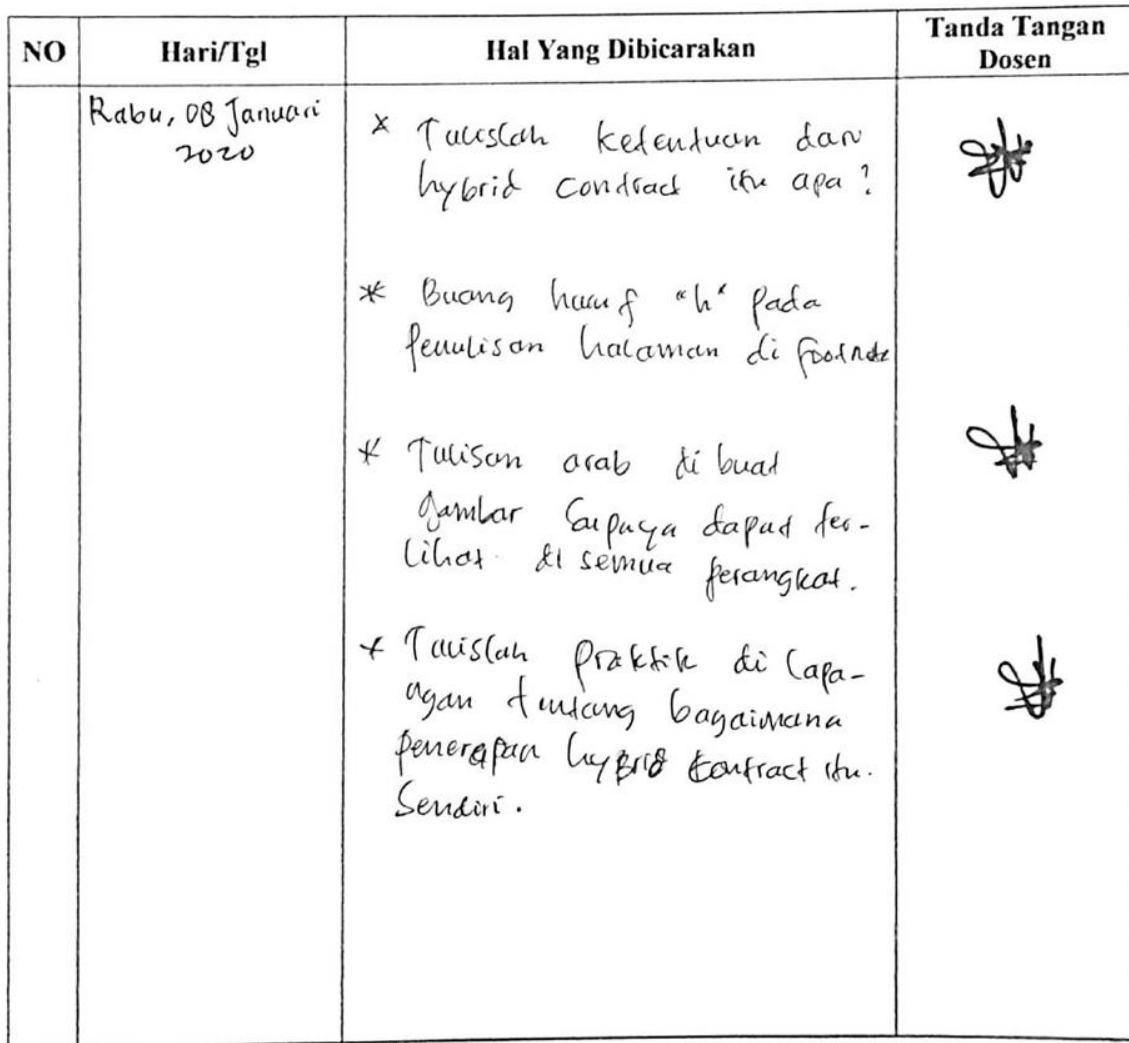 NO
Hari/Tgl
Hal Yang Dibicarakan
Tanda Tangan
Dosen
Rabu, 08 Januari
2020
* Tulislah ketentuan dari
hybrid contract itu apa?
* Buang huruf "h" pada
penulisan halaman di footnote
* Tulisan arab di buat
gambar supaya dapat ter-
lihat di semua perangkat.
* Tulislah praktik di lapa-
ngan tentang bagaimana
penerapan hybrid contract itu.
Sendiri.